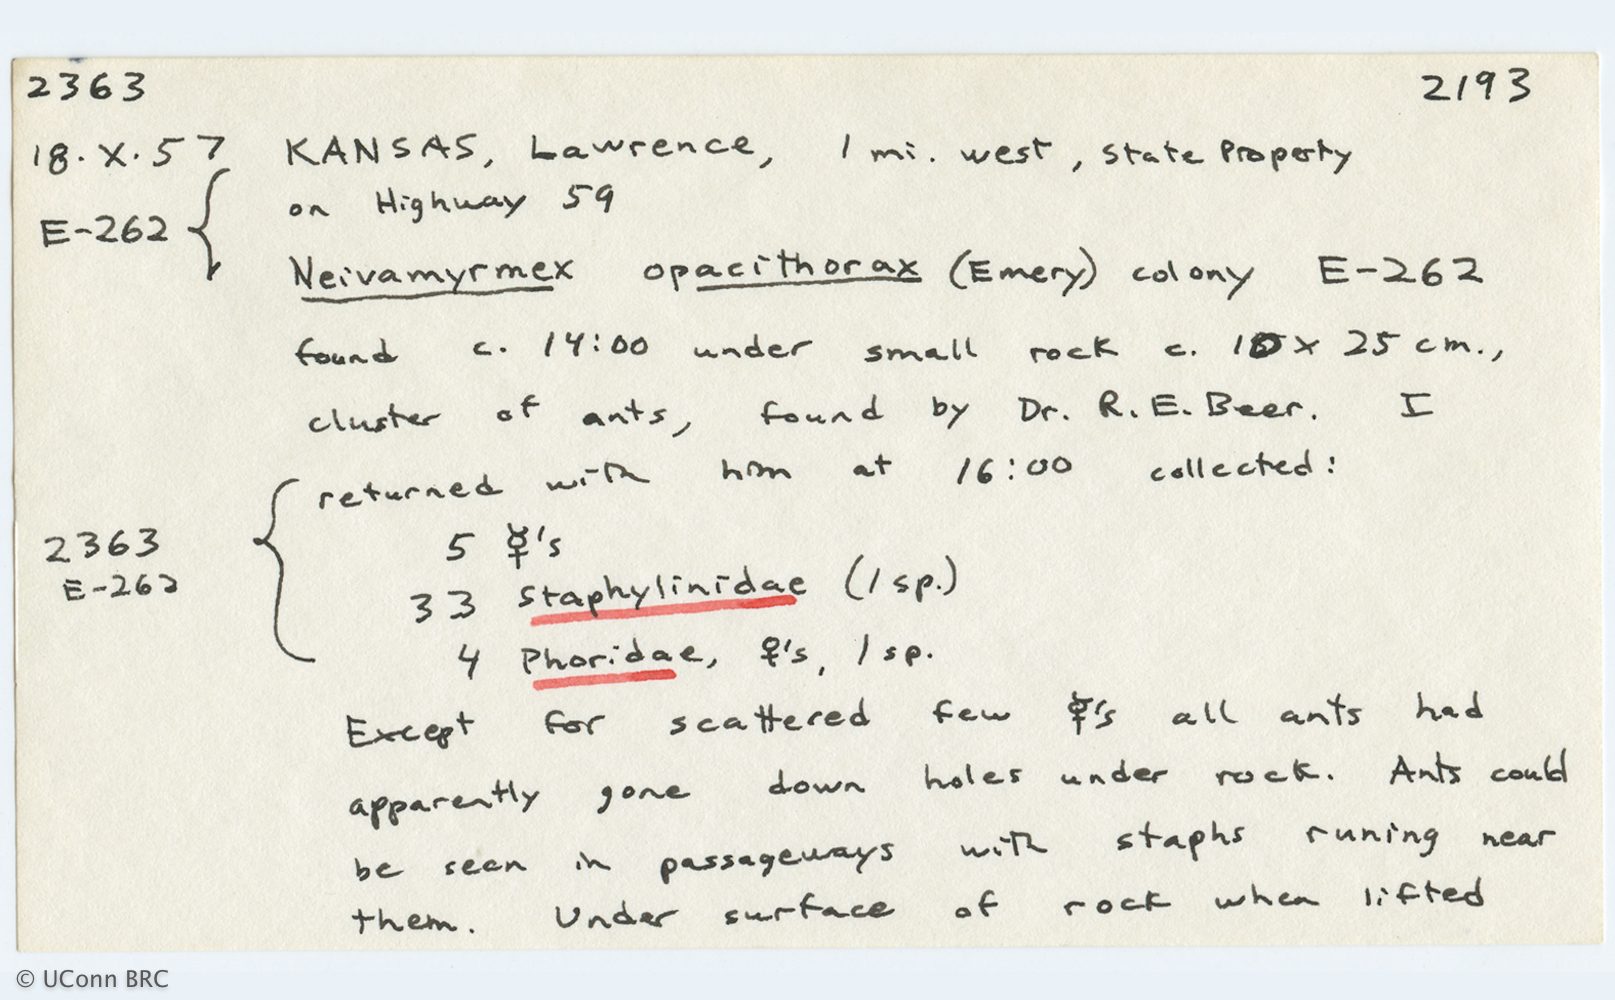 2363 2193
18.X.57 KANSAS, Lawrence, 1 mi. west, State Property
on Highway 59
E-262
Neivamyrmex opacithorax (Emery) colony E-262
found c. 14:00 under small rock c. 10 x 25 cm.,
cluster of ants, found by Dr. R.E. Beer. I
returned with him at 16:00 collected:
2363 5 ☿'s
E-262 33 Staphylinidae (1 sp.)
4 Phoridae, ♀'s, 1 sp.
Except for scattered few ☿'s all ants had
apparently gone down holes under rock. Ants could
be seen in passageways with staphs runing near
them. Under surface of rock when lifted
© UConn BRC